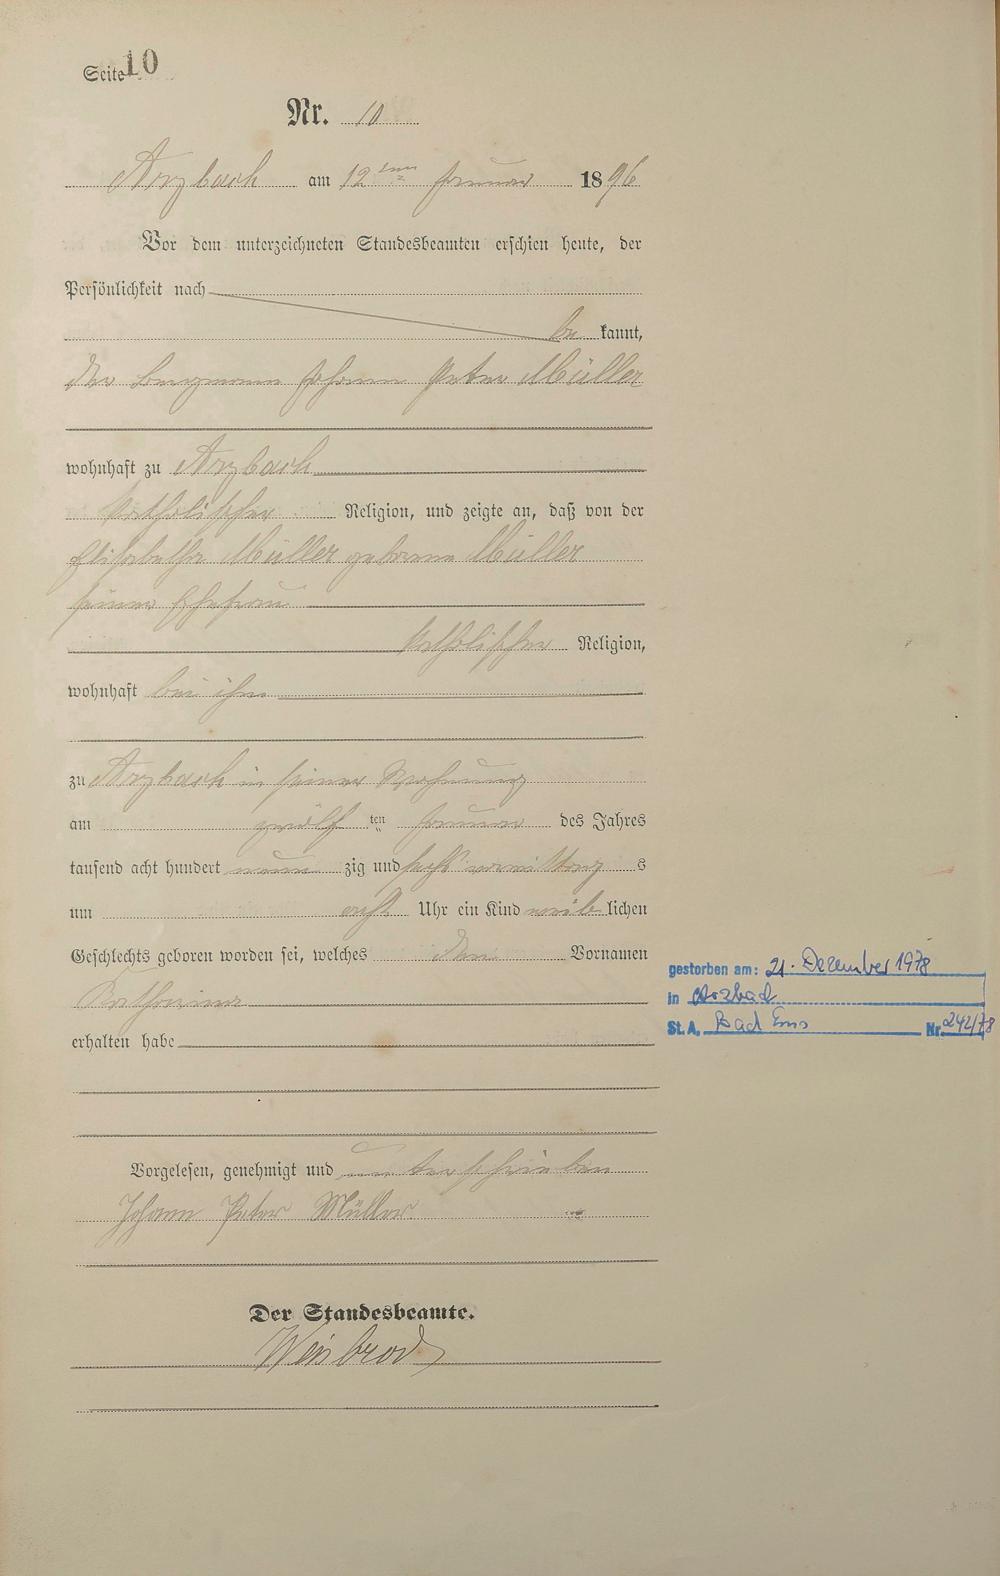 Seite 10
Nr. 10
Arzbach am 12 ten Januar 1896
Vor dem unterzeichneten Standesbeamten erschien heute, der
Persönlichkeit nach
be kannt,
der Bergmann Johann Peter Müller
wohnhaft zu Arzbach
katholischer Religion, und zeigte an, daß von der
Elisabetha Müller geborene Müller
seiner Ehefrau
katholischer Religion,
wohnhaft bei ihm
zu Arzbach in seiner Wohnung
am zwölf ten Januar des Jahres
tausend acht hundert neun zig und sechs vormittag s
um acht Uhr ein Kind weib lichen
Geschlechts geboren worden sei, welches den Vornamen
Katharina
erhalten habe
Vorgelesen, genehmigt und unterschrieben
Johann Peter Müller
Der Standesbeamte.
Weisbrod
gestorben am: 21. Dezember 1978
in Arzbach
St. A. Bad Ems Nr. 242/78